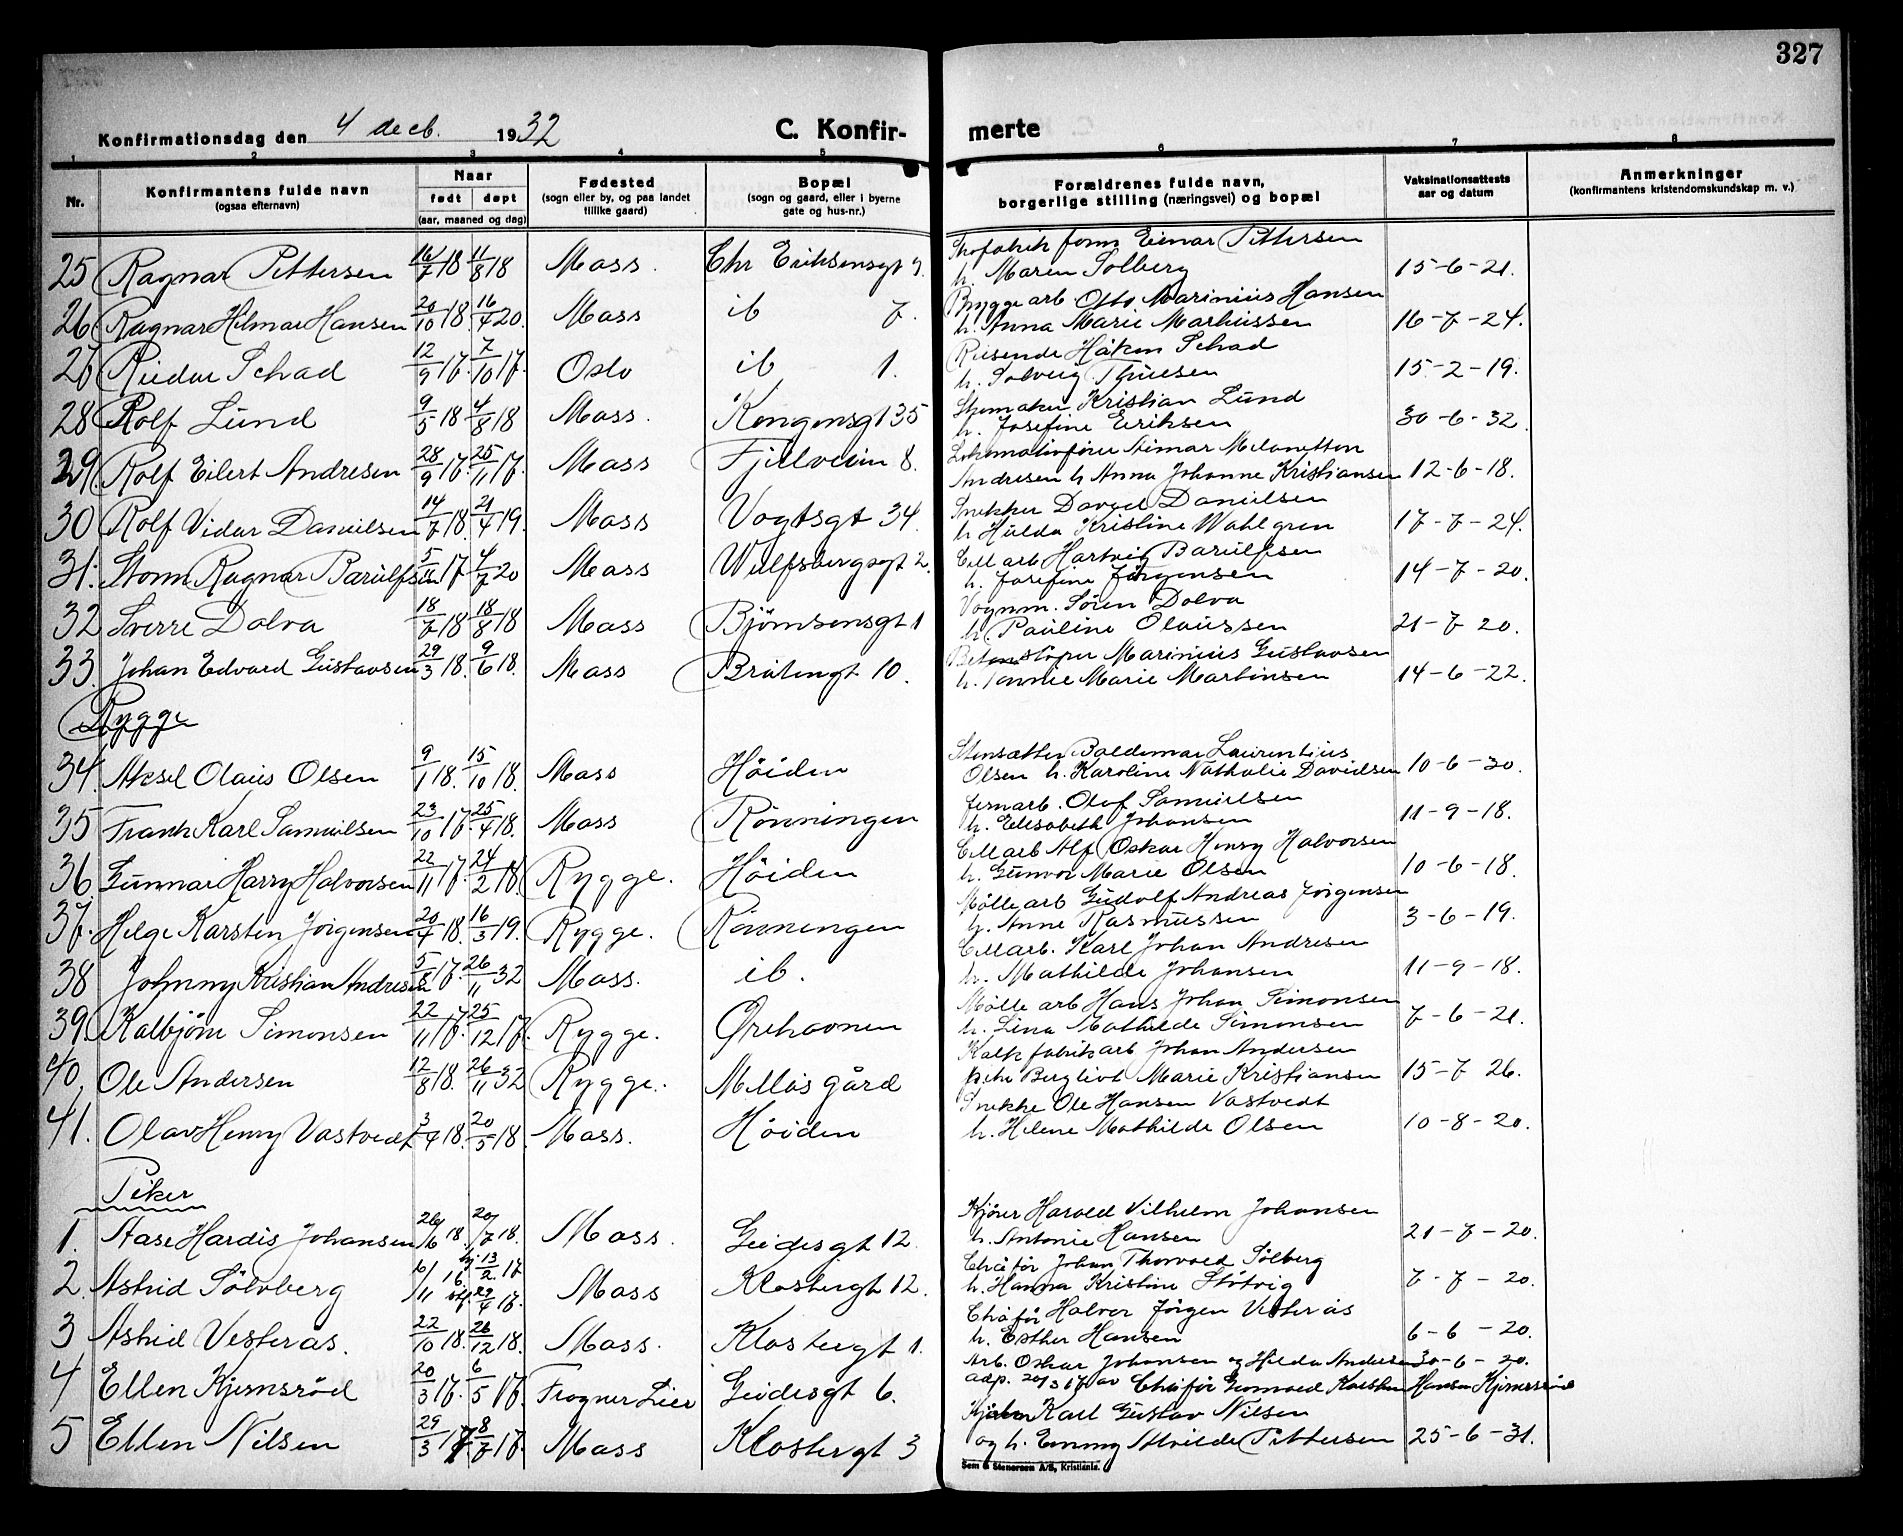 327
Konfirmationsdag den 4 decb. 1932 C. Konfir- merte
1 2 3 4 5 6 7 8
Nr. Konfirmantens fulde navn (ogsaa efternavn) Naar født døpt (aar, maaned og dag) Fødested (sogn eller by, og paa landet tillike gaard) Bopæl (sogn og gaard, eller i byerne gate og hus-nr.) Forældrenes fulde navn, borgerlige stilling (næringsvei) og bopæl Vaksinationsattests aar og datum Anmerkninger (konfirmantens kristendomskundskap m. v.)
25 Ragnar Pettersen 16/7 18 11/8 18 Moss. Chr Eriksensgt 9. Einar Pettersen
h. Maren Solberg 15-6-21.
26 Ragnar Hilmar Hansen 20/10 18 16/4 20. Moss ib 7. Bryggearb Otto Marinius Hansen
h. Anna Marie Markussen 16-7-24.
27 Reidar Schad 12/9 17. 7/10 17. Oslo ib 1. Reisende Håkon Schad
h. Solveig Thuesen 15-2-19.
28 Rolf Lund 9/5 18 4/8 18 Moss. Kongensgt 35 Skomaker Kristian Lund
h. Josefine Eriksen 30-6-32.
29 Rolf Eilert Andresen 28/9 17. 25/11 17. Moss Fjellveien 8. Lokomotivfører Melankton
Andresen h Anna Johanne Kristiansen 12-6-18.
30 Rolf Vidar Danielsen 14/7 18. 21/4 19. Moss Vogtsgt 34. Snekker David Danielsen
h Hulda Kristine Wahlgren 17-7-24.
31. Ragnar Barulfsen 5/11 17 4/7 20 Moss Wulfsbergsgt 2. Cell arb Hartvig Barulfsen
h. Josefine Jørgensen 14-7-20.
32 Sverre Dolva 18/7 18 18/8 18 Moss Bjørnsensgt 1 Vognm. Søren Dolva
h. Pauline Olaussen 21-7 20.
33. Johan Edvard Gustavsen 29/3 18. 9/6 18. Moss Bråtengt 10. Betonstøper Marinius Gustavsen
h. Marie Martinsen 14-6-22.
Rygge
34. Aksel Olaus Olsen 9/1 18. 15/10 18. Moss Høiden Stensætter Valdemar Laurentius
Olsen h. Karoline Nathalie Davidsen 10-6-30.
35 Frank Karl Samuelsen 23/10 17. 25/4 18. Moss Rønningen Jernarb. Olof Samuelsen
h. Elisabeth Johansen 11-9-18.
36. Gunnar Harry Halvorsen 22/11 17. 24/2 18. Rygge. Høiden Cell arb Alf Oskar Henry Halvorsen
h. Gunvor Marie Olsen 10-6-18.
37. Helge Karsten Jørgensen 20/4 18. 16/3 19. Rygge. Rønningen Mølle arb Gudolf Andreas Jørgensen
h. Anne Rasmussen 3-6-19.
38 Johnny Kristian Andresen 5/8 17. 26/11 32 Moss. ib. Cell arb. Karl Johan Andresen
h. Mathilde Johansen 11-9-18.
39. Kolbjørn Simonsen 22/11 17. 25/12 17. Rygge. Ørehavnen Mølle arb Hans Johan Simonsen
h. Lina Mathilde Simonsen 7-6-21.
40. Ole Andersen 12/8 18. 26/11 32 Rygge. Melløsgård Kalkfabrikarb Johan Andersen
Bergliot Marie Kristiansen 15-7 26.
41. Olav Henry Vastvedt 3/4 18. 20/5 18. Moss. Høiden Snekke Ole Hansen Vastvedt
h. Helene Mathilde Olsen 10-8-20.
Piker
1. Aase Hardis Johansen 26/6 18. 20/7 18. Moss. Geidesgt 12 Kjører Harald Vilhelm Johansen
h. Antonie Hansen 21-7-20.
2. Astrid Sølvberg 6/11 16. hj 13/2 17 stf. 29/4 17. Moss Klostergt 12. Chåffør Johan Thorvald Sølberg
h. Hanna Kristine Støtvig 7-7-20.
3 Astrid Vesterås. 22/10 18. 26/12 18. Moss. Klostergt 1. Chåffør Halvor Jørgen Vesterås
h. Esther Hansen 6-6-20.
4 Ellen Kjernsrød 20/3 17. 6/5 17. Frogner Lier Geidesgt 6. Arb. Oskar Johansen og Hilda Andersen 30-6-20.
adp. 20/3 17 av Chåffør Karsten Hansen Kjernsrød
5 Ellen Nilsen 29/3 17 8/7 17. Moss Klostergt 3 Karl Gustav Nilsen
og h. Emmy Alvilde Pettersen 25-6-31.
Sem & Stenersen A/S, Kristiania.